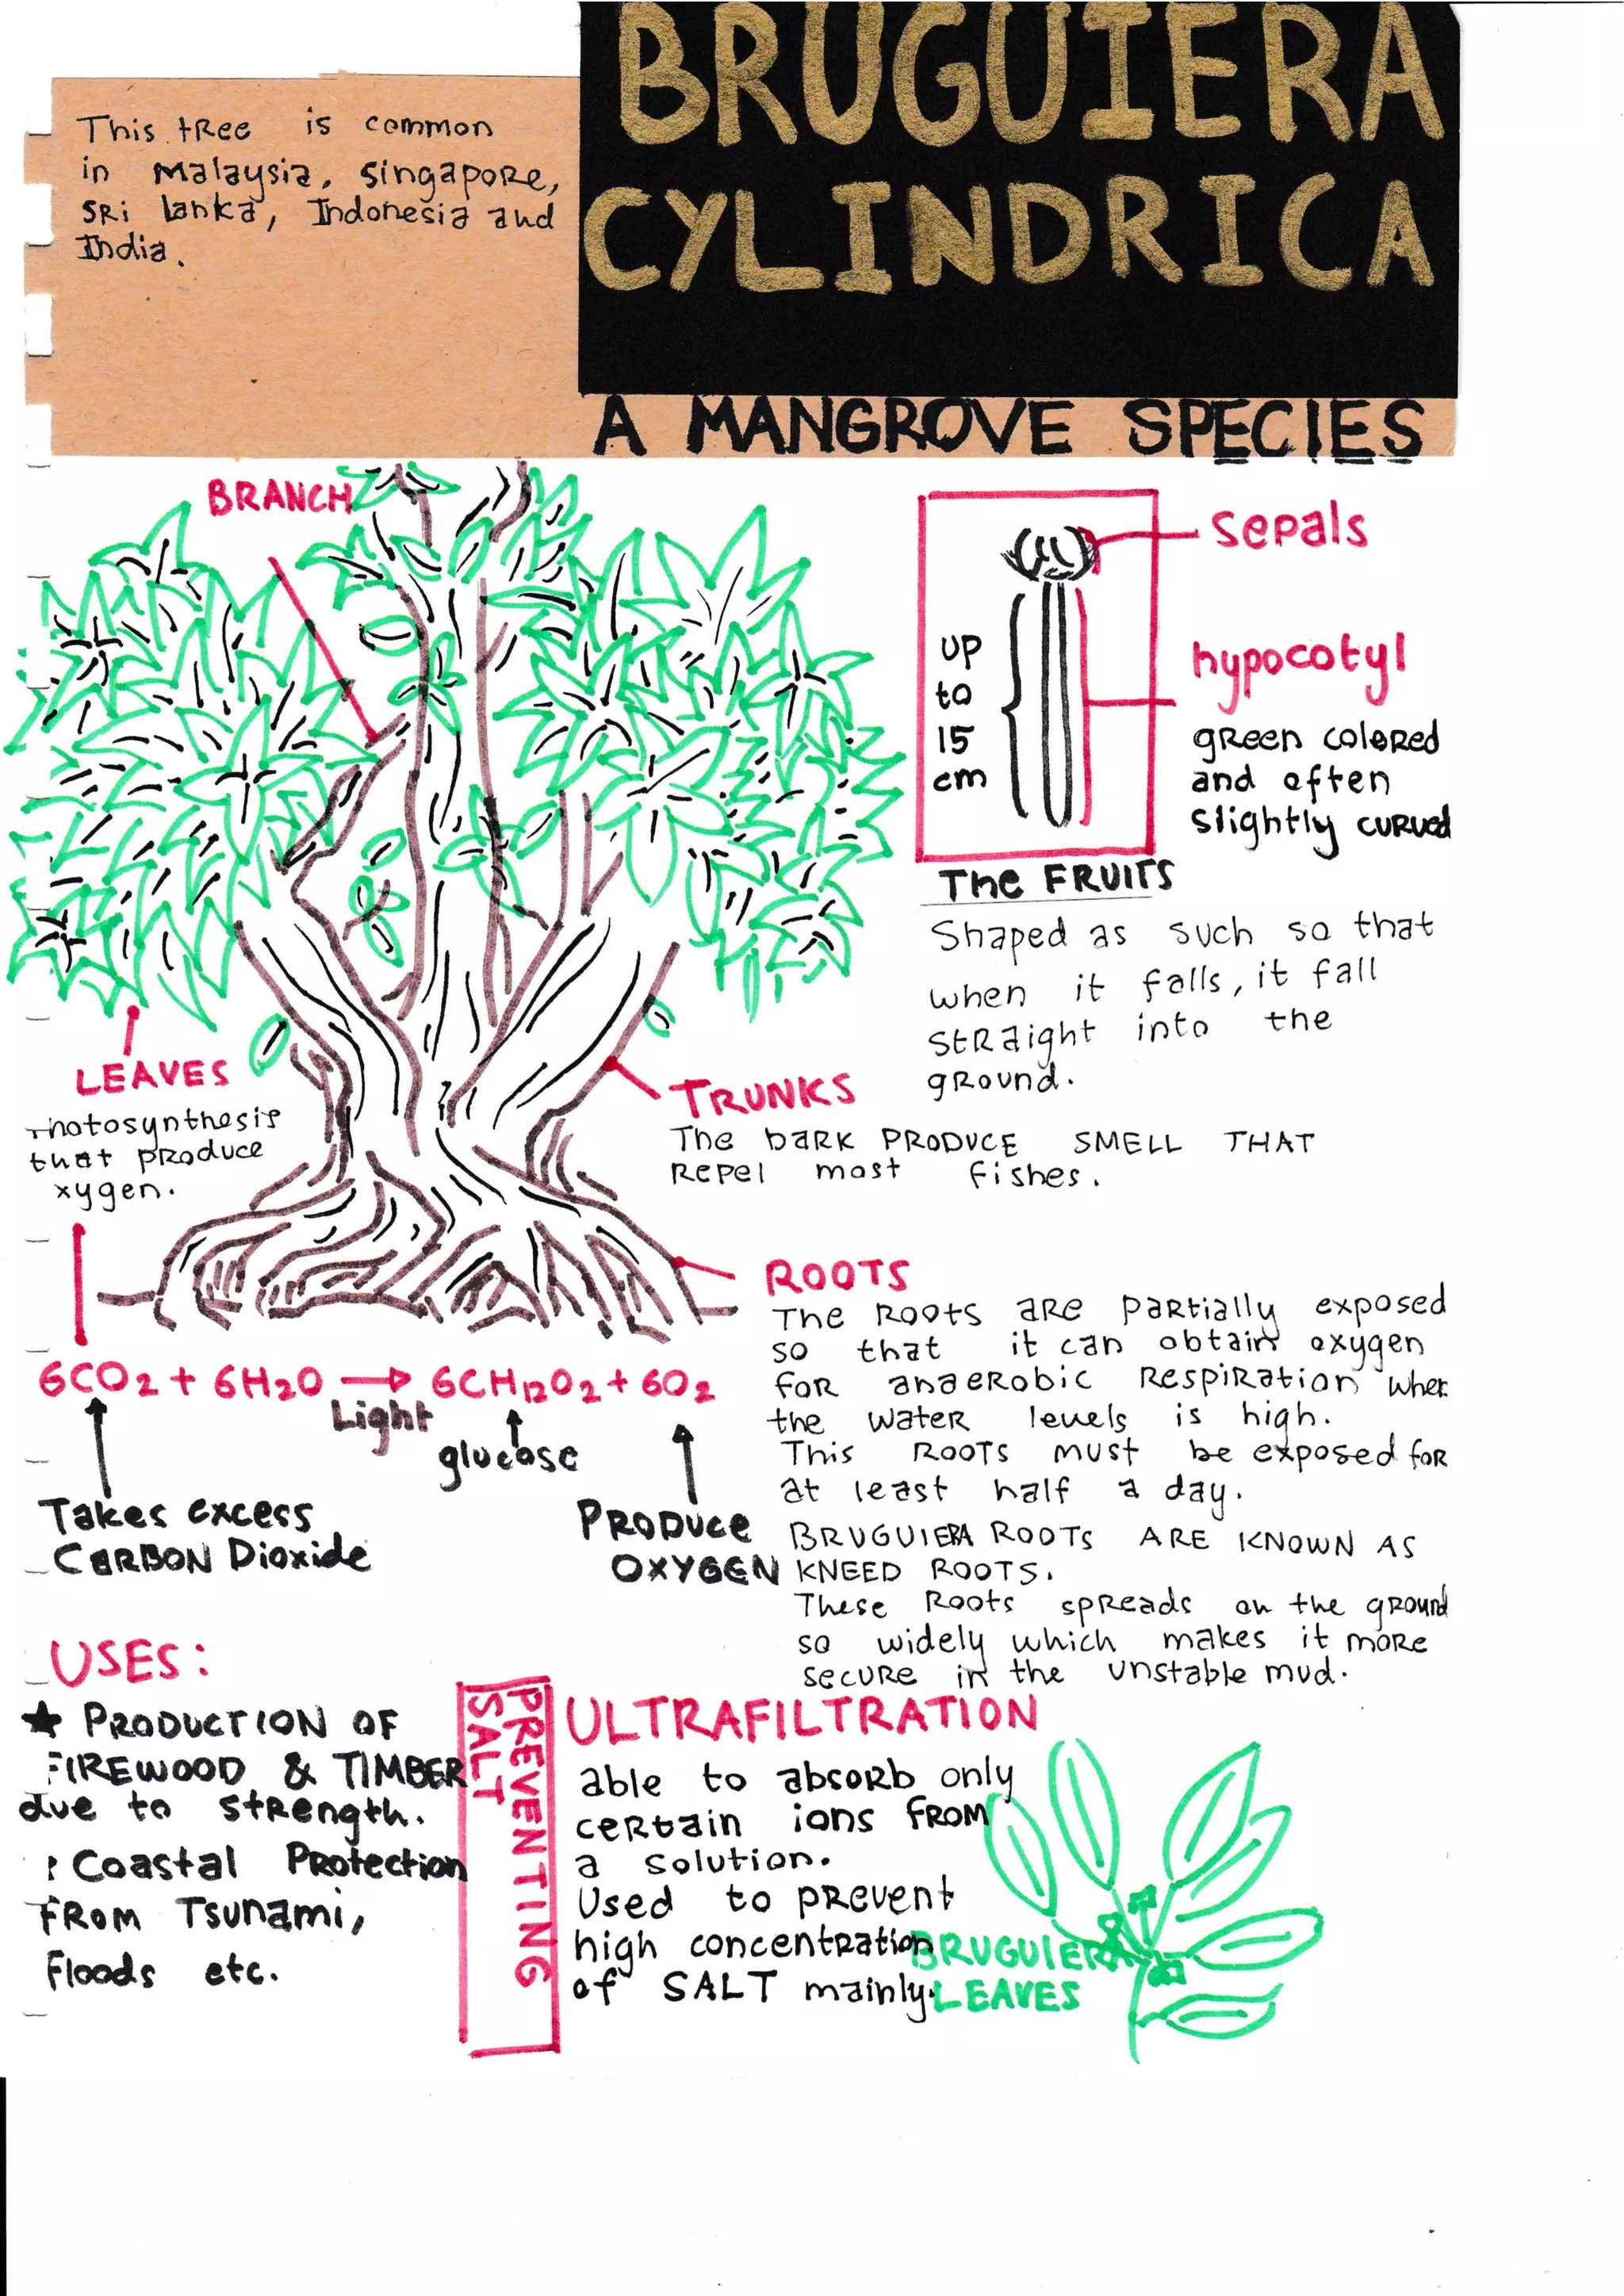 BRUGUIERA
CYLINDRICA
A MANGROVE SPECIES
This tree is common
in Malaysia, Singapore,
Sri Lanka, Indonesia and
India.
BRANCH
Sepals
up
to
15
cm
hypocotyl
green colored
and often
slightly curved
The FRUITS
Shaped as such so that
when it falls, it fall
straight into the
ground.
LEAVES
Photosynthesis
that produce
xygen.
TRUNKS
The bark PRODUCE SMELL THAT
Repel most fishes.
ROOTS
The Roots are partially exposed
so that it can obtain oxygen
for anaerobic Respiration when
the water levels is high.
This Roots must be exposed for
at least half a day.
BRUGUIERA ROOTS ARE KNOWN AS
KNEED ROOTS.
These Roots spreads on the ground
so widely which makes it more
secure in the unstable mud.
6CO2 + 6H2O → 6CH12O2 + 6O2
Light
glucose
Takes excess
CARBON Dioxide
PRODUCE
OXYGEN
USES:
★ PRODUCTION OF
FIREWOOD & TIMBER
due to strength.
Coastal Protection
FROM Tsunami,
Floods etc.
PREVENTING
SALT
ULTRAFILTRATION
able to absorb only
certain ions FROM
a solution.
Used to prevent
high concentration
of SALT mainly.
BRUGUIERA
LEAVES